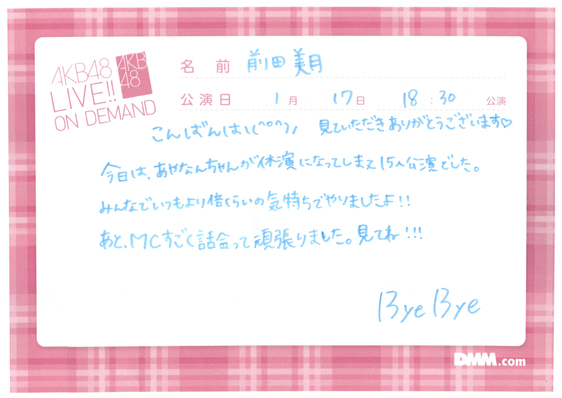 AKB48
LIVE!!
ON DEMAND
AKB
48
名 前 前田美月
公演日 1月 17日 18:30 公演
こんばんは\(^o^)/ 見ていただきありがとうございます♡
今日は、あやなんちゃんが休演になってしまい15人公演でした。
みんなでいつもより倍くらいの気持ちでやりましたよ!!
あと、MCすごく話合って頑張りました。見てね!!!
Bye Bye
DMM.com